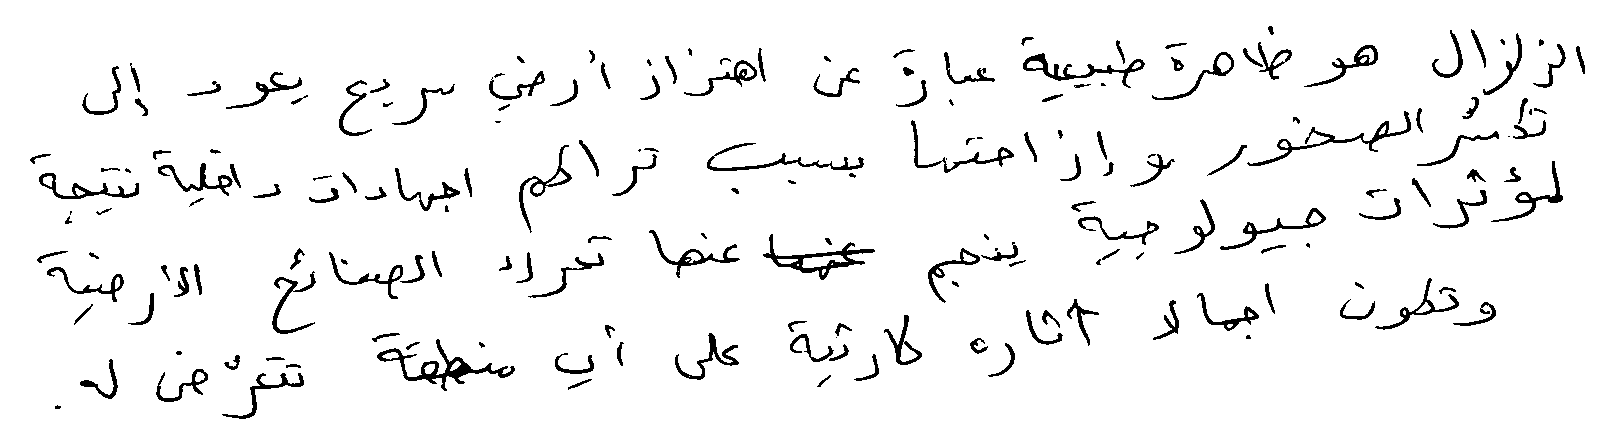 الزلزال هو ظاهرة طبيعية عبارة عن اهتزاز أرضي سريع يعود إلى
تكسّر الصخور وإزاحتها بسبب تراكم اجهادات داخلية نتيجة
لمؤثرات جيولوجية ينجم عنها تحرك الصفائح الأرضية
وتكون اجمالا آثاره كارثية على أي منطقة تتعرّض له.